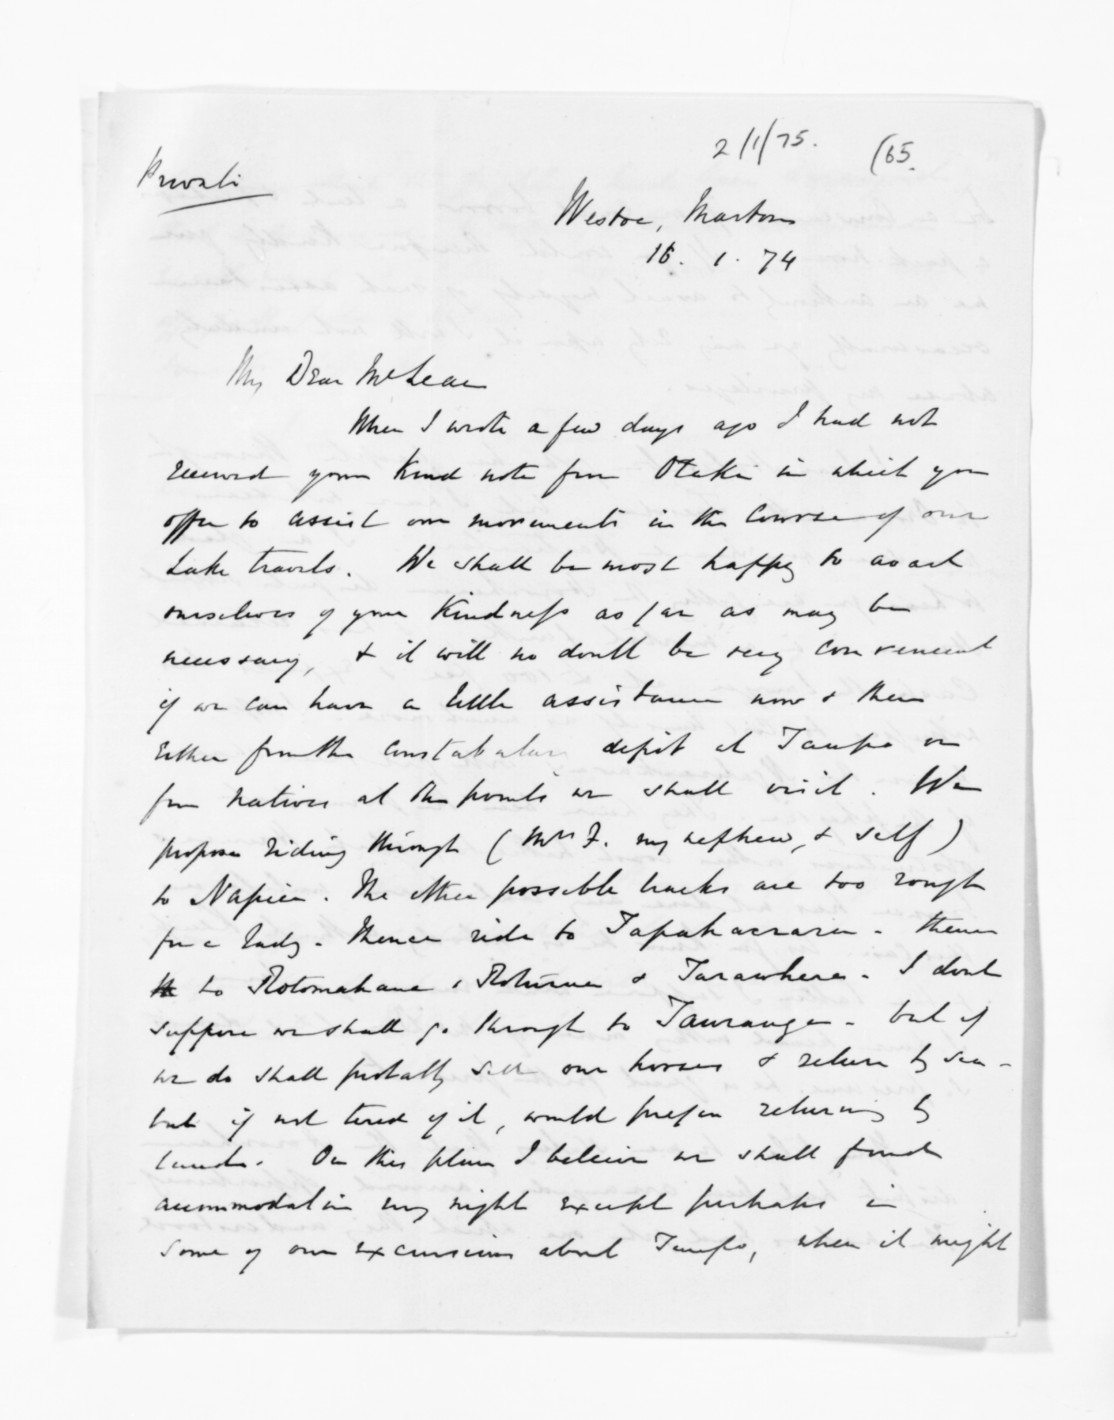 2/1/75. (65.
Private
Westoe, Marton
16. 1. 74
My Dear McLean
When I wrote a few days ago I had not
received your kind note from Otaki in which you
offer to assist our movements in the course of our
Lake travels. We shall be most happy to avail
ourselves of your kindness as far as may be
necessary, & it will no doubt be very convenient
if we can have a little assistance now & then
either from the constabulary depôt at Taupo or
from natives at the points we shall visit. We
propose riding through (Mrs F. my nephew, & self)
to Napier. The other possible tracks are too rough
for a lady. Thence ride to Tapuhaeraru - thence
to Rotomahana & Roturua & Tarawhera - I dont
suppose we shall go through to Tauranga - but if
we do shall probably sell our horses & return by sea -
but if not tired of it, would prefer returning by
land. On this plan I believe we shall find
accommodation every night except perhaps in
some of our excursions about Taupo, when it might